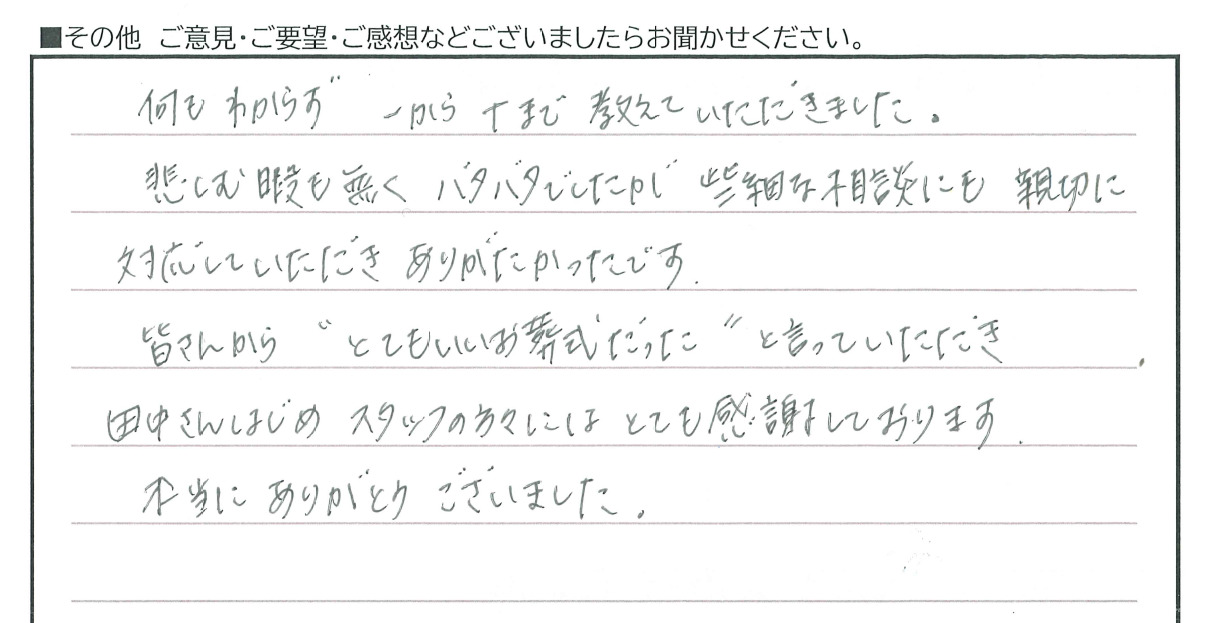 ■その他 ご意見・ご要望・ご感想などございましたらお聞かせください。
何もわからず 一から十まで 教えていただきました。
悲しむ暇も無く バタバタでしたが 些細な相談にも 親切に
対応していただき ありがたかったです.
皆さんから “とてもいいお葬式だった” と言っていただき
田中さんはじめ スタッフの方々には とても感謝しております.
本当に ありがとう ございました.